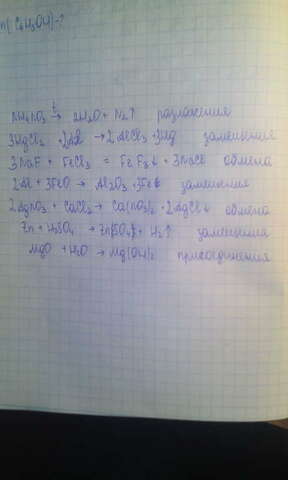 n(C6H5OH)-?
NH4NO3 t→ 2H2O + N2↑ разложения
3HgCl2 + 2Al → 2AlCl3 + 3Hg замещения
3NaF + FeCl3 = FeF3↓ + 3NaCl обмена
2Al + 3FeO → Al2O3 + 3Fe↓ замещения
2AgNO3 + CaCl2 → Ca(NO3)2 + 2AgCl↓ обмена
Zn + H2SO4 → ZnSO4 + H2↑ замещения
MgO + H2O → Mg(OH)2 присоединения